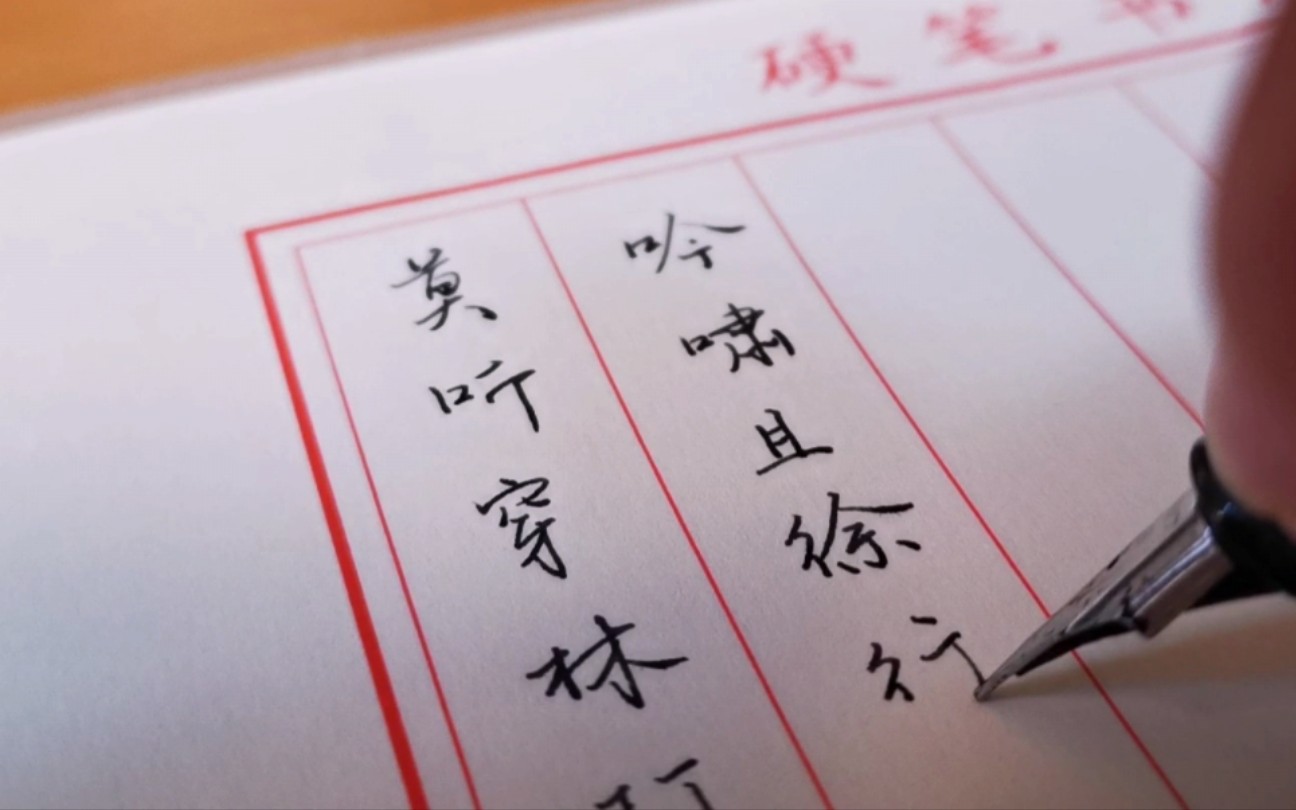 硬笔书
莫听穿林打
吟啸且徐行